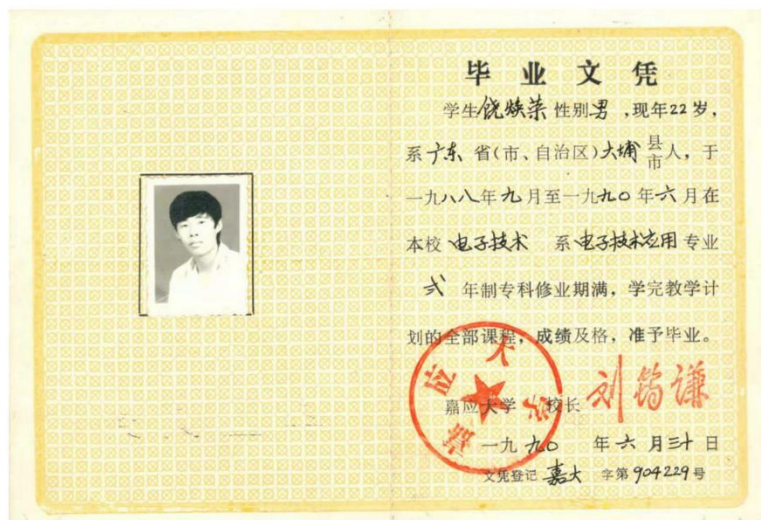 毕业文凭
学生饶焕荣性别男，现年22岁，
系广东省(市、自治区)大埔县市人，于
一九八八年九月至一九九〇年六月在
本校电子技术系电子技术应用专业
弍年制专科修业期满，学完教学计
划的全部课程，成绩及格，准予毕业。
嘉应大学
嘉应大学 校长 刘筠谦
一九九〇年六月三十日
文凭登记嘉大字第904229号